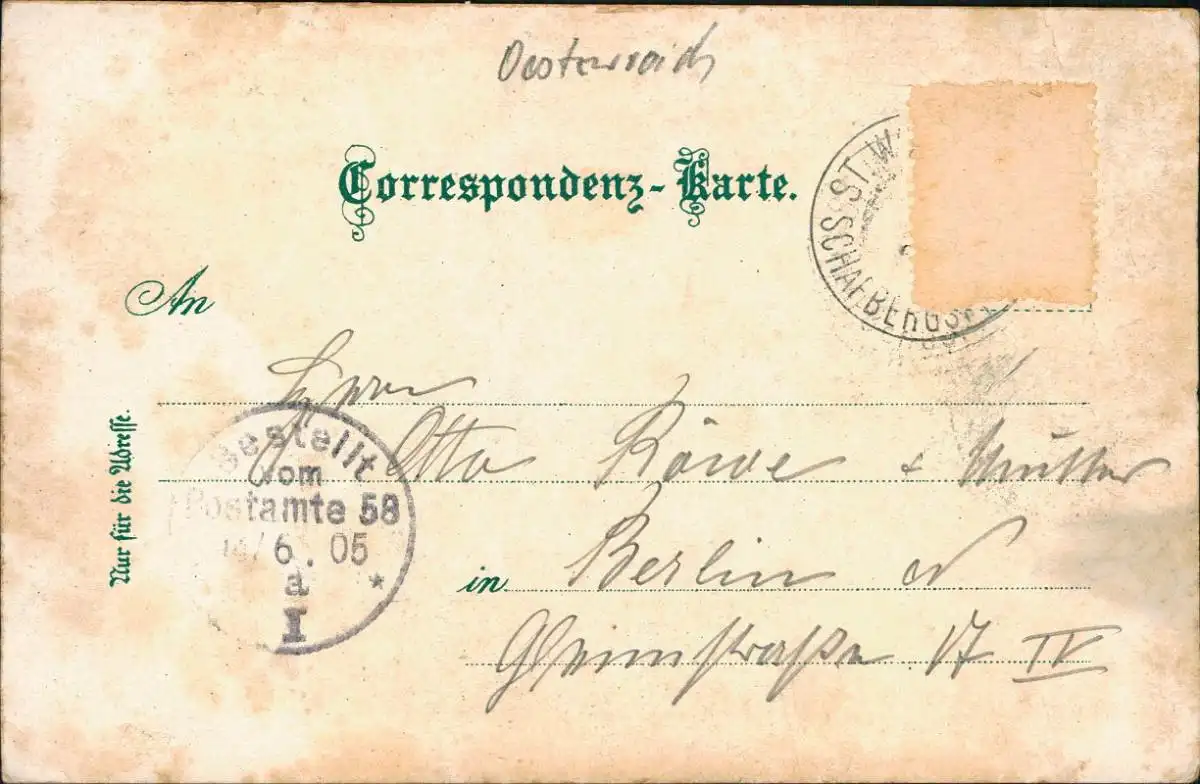 Oesterreich
Correspondenz-Karte.
ST. W
SCHAFBERGSP
An
Nur für die Adresse.
Herrn
Otto Röwe + Mutter
Bestellt
vom
Postamte 58
/6.05
a
*
I
in Berlin N
Glimstraße 17 IV